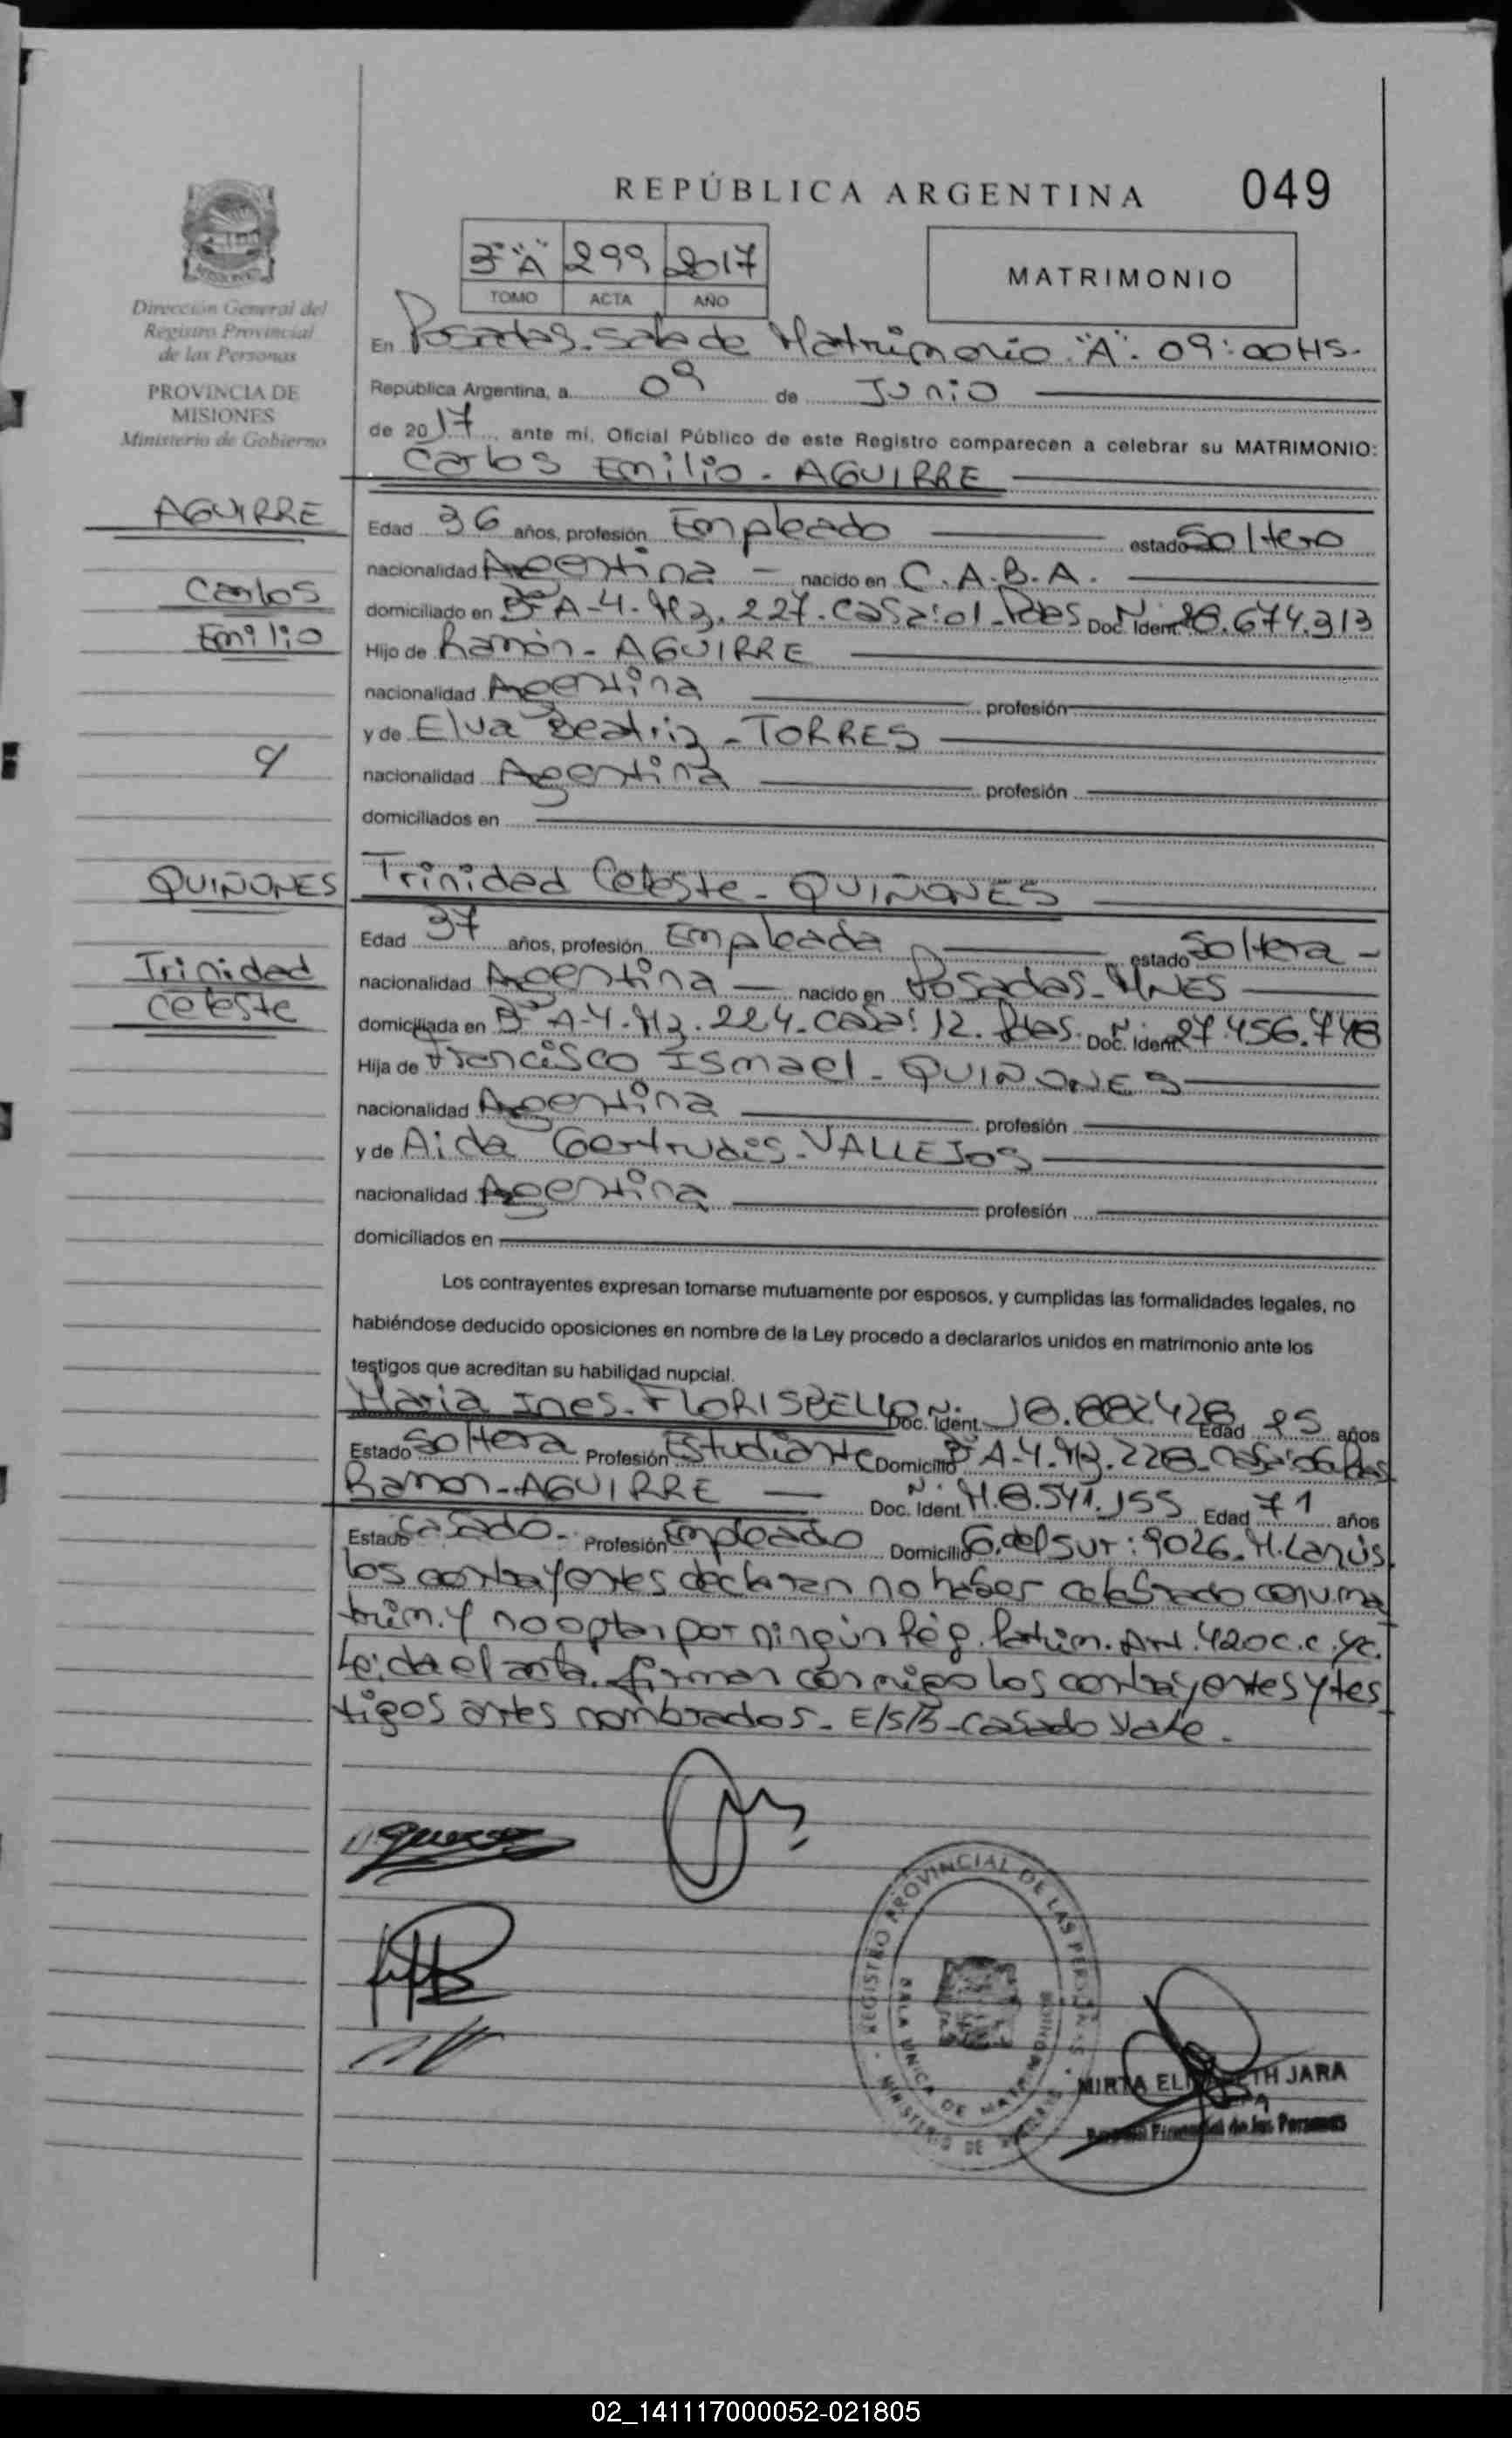 REPÚBLICA ARGENTINA 049
3º "A" 299 2017
TOMO ACTA AÑO
MATRIMONIO
Dirección General del
Registro Provincial
de las Personas
PROVINCIA DE
MISIONES
Ministerio de Gobierno
En Posadas. Sala de Matrimonio "A". 09:00 HS.
República Argentina, a 09 de Junio
de 2017, ante mi, Oficial Público de este Registro comparecen a celebrar su MATRIMONIO:
Carlos Emilio - AGUIRRE
AGUIRRE
Carlos
Emilio
Edad 36 años, profesión Empleado estado Soltero
nacionalidad Argentina - nacido en C.A.B.A.
domiciliado en Bº A-4. Mz. 227. Casa: 01 - Pdas Doc. Ident. Nº 28.674.313
Hijo de Ramón - AGUIRRE
nacionalidad Argentina profesión
y de Elva Beatriz - TORRES
nacionalidad Argentina profesión
domiciliados en
y
QUIÑONES
Trinidad
Celeste
Trinidad Celeste - QUIÑONES
Edad 37 años, profesión Empleada estado Soltera -
nacionalidad Argentina - nacido en Posadas - MNES
domiciliada en Bº A-4. Mz. 224. Casa: 12. Pdas. Doc. Ident. Nº 27.456.748
Hija de Francisco Ismael - QUIÑONES
nacionalidad Argentina profesión
y de Aida Gertrudis - VALLEJOS
nacionalidad Argentina profesión
domiciliados en
Los contrayentes expresan tomarse mutuamente por esposos, y cumplidas las formalidades legales, no
habiéndose deducido oposiciones en nombre de la Ley procedo a declararlos unidos en matrimonio ante los
testigos que acreditan su habilidad nupcial.
Maria Ines - FLORISBELLO Doc. Ident. Nº Edad 25 años
Estado Soltera Profesión Estudiante Domicilio Bº A-4. Mz. 228. Casa: 06 Pdas
Ramon - AGUIRRE Doc. Ident. Nº M.8.541.155 Edad 71 años
Estado Casado - Profesión Empleado Domicilio C. del Sur: 9026. M. Lanús
los contrayentes declaran no haber celebrado conv. ma
trim. y no optar por ningún Rég. Patrim. Art. 420 C.C. y C.
Leida el acta, firman conmigo los contrayentes y tes
tigos antes nombrados - E/S/B - Casado Vale.
REGISTRO PROVINCIAL DE LAS PERSONAS
SALA UNICA DE MATRIMONIOS
MINISTERIO DE GOBIERNO
MIRTA ELIZABETH JARA
Registro Provincial de las Personas
02_141117000052-021805